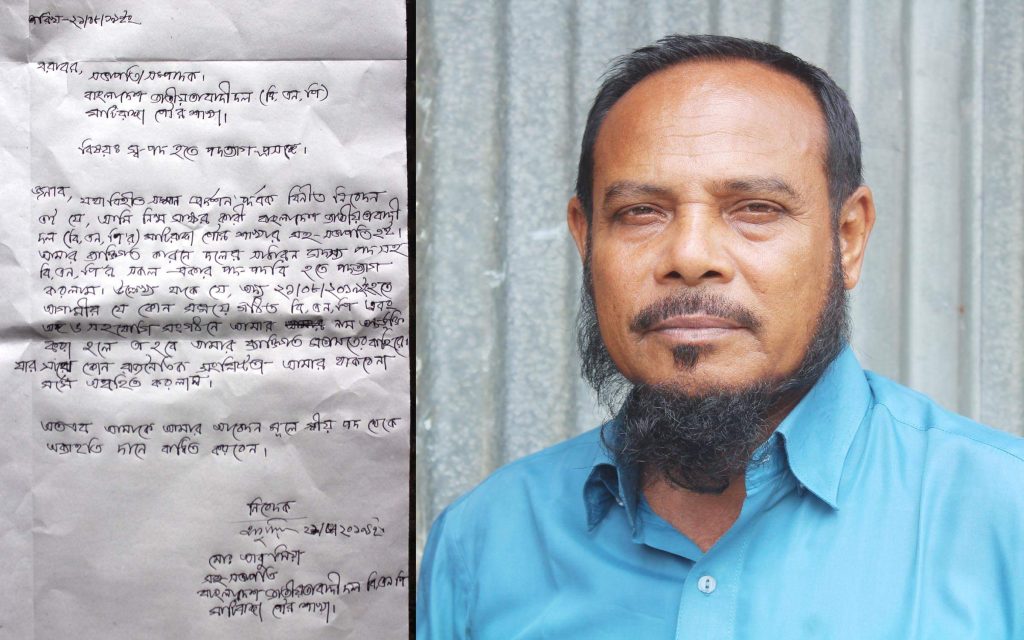 তারিখ-২১/০৮/২০১৯ইং
বরাবর,
সভাপতি/সম্পাদক।
বাংলাদেশ জাতীয়তাবাদী দল (বি,এন,পি)
মাটিরাঙ্গা পৌর শাখা।
বিষয়ঃ স্ব-পদ হতে পদত্যাগ প্রসঙ্গে।
জনাব, যথাবিহীত সম্মান প্রদর্শন পূর্বক বিনীত নিবেদন
এই যে, আমি নিম্ন স্বাক্ষর কারী বাংলাদেশ জাতীয়তাবাদী
দল (বি,এন,পি'র) মাটিরাঙ্গা পৌর শাখার সহ-সভাপতি হই।
আমার ব্যক্তিগত কারনে দলের সাধারন সদস্য পদ সহ
বি,এন,পি'র সকল প্রকার পদ-পদবি হতে পদত্যাগ
করলাম। উল্লেখ্য থাকে যে, অদ্য ২১/০৮/২০১৯ইং হতে
আগামীর যে কোন সময়ে গঠিত বি,এন,পি এবং
অঙ্গ ও সহযোগি সংগঠনে আমার নাম অর্ন্তভুক্তি
করা হলে তা হবে আমার ব্যক্তিগত মতামতের বাহিরে।
যার সাথে কোন রাজনৈতিক সংশ্লিষ্টতা আমার থাকবে না
মর্মে অবহিত করলাম।
অতএব আমাকে আমার আবেদন মূলে স্বীয় পদ থেকে
অব্যাহতি দানে বাধিত করবেন।
নিবেদক
২১/০৮/২০১৯ইং
মোঃ আবু মিয়া
সহ-সভাপতি
বাংলাদেশ জাতীয়তাবাদী দল বি,এন,পি
মাটিরাঙ্গা পৌর শাখা।